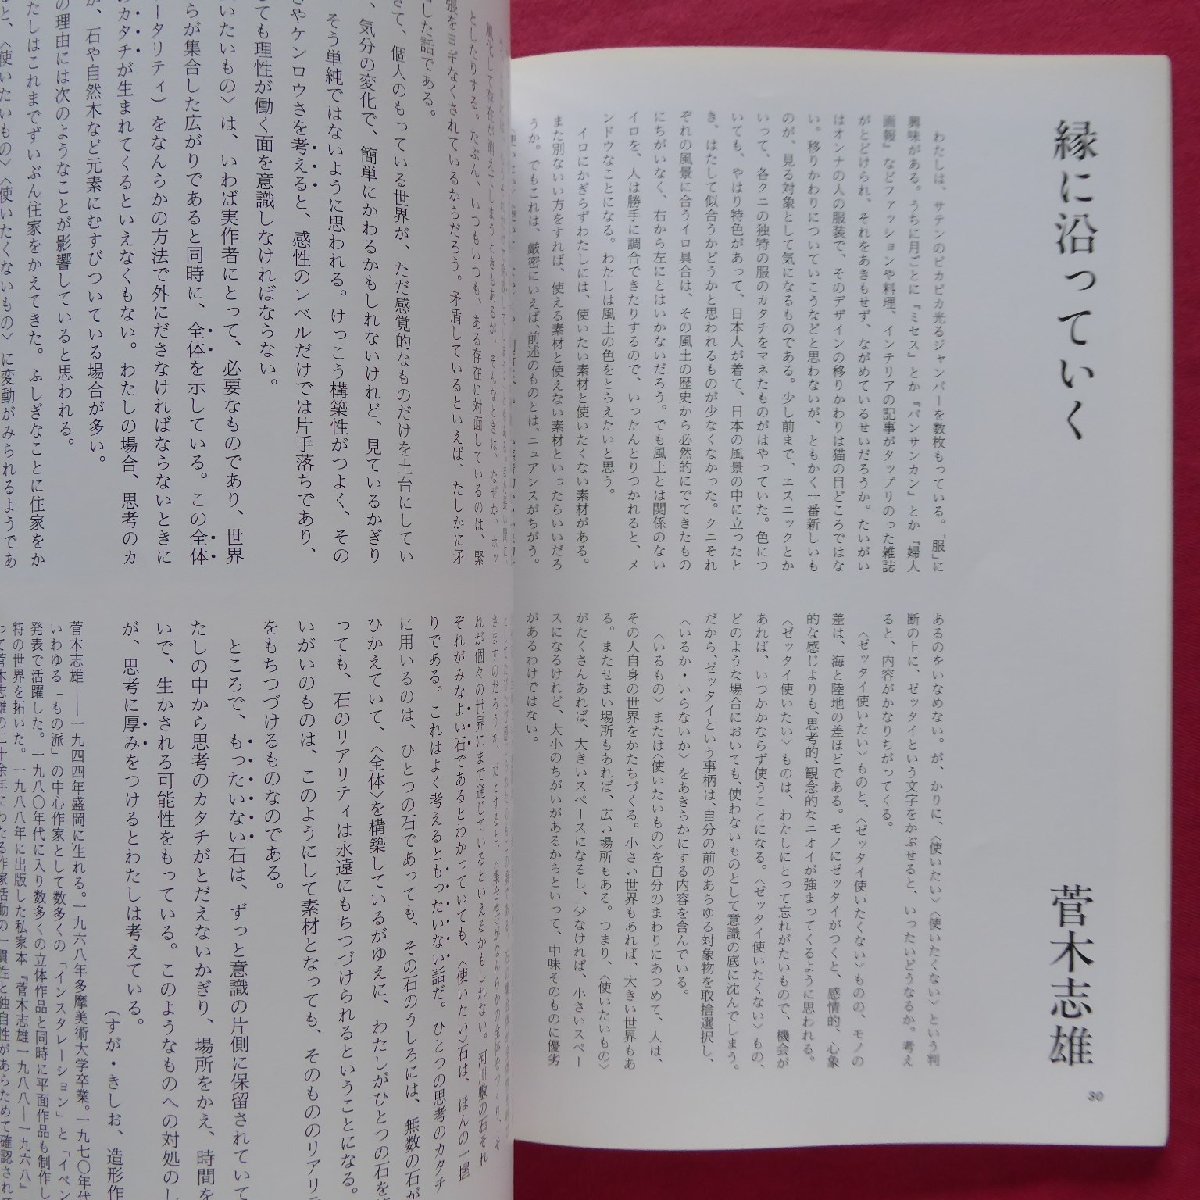 縁に沿っていく
菅木志雄
わたしは、サテンのピカピカ光るジャンパーを数枚もっている。「服」に
興味がある。うちに月ごとに『ミセス』とか『バンサンカン』とか『婦人
画報』などファッションや料理、インテリアの記事がタップリのった雑誌
がとどけられ、それをあきもせず、ながめているせいだろうか。たいがい
はオンナの人の服装で、そのデザインの移りかわりは猫の目どころではな
い。移りかわりについていこうなどと思わないが、ともかく一番新しいも
のが、見る対象として気になるものである。少し前まで、エスニックとか
いって、各クニの独特の服のカタチをマネたものがはやっていた。色につ
いても、やはり特色があって、日本人が着て、日本の風景の中に立ったと
き、はたして似合うかどうかと思われるものが少なくなかった。クニそれ
ぞれの風景に合うイロ具合は、その風土の歴史から必然的にでてきたもの
にちがいなく、右から左にとはいかないだろう。でも風土とは関係のない
イロを、人は勝手に調合できたりするので、いったんとりつかれると、メ
ンドウなことになる。わたしは風土の色をとらえたいと思う。
イロにかぎらずわたしには、使いたい素材と使いたくない素材がある。
また別ないい方をすれば、使える素材と使えない素材といったらいいだろ
うか。でもこれは、厳密にいえば、前述のものとは、ニュアンスがちがう。
あるのをいなめない。が、かりに、〈使いたい〉〈使いたくない〉という判
断の上に、ゼッタイという文字をかぶせると、いったいどうなるか。考え
ると、内容がかなりちがってくる。
〈ゼッタイ使いたい〉ものと、〈ゼッタイ使いたくない〉ものの、モノの
差は、海と陸地の差ほどである。モノにゼッタイがつくと、感情的、心象
的な感じよりも、思考的、観念的なニオイが強まってくるように思われる。
〈ゼッタイ使いたい〉ものは、わたしにとって忘れがたいもので、機会が
あれば、いつかかならず使うことになる。〈ゼッタイ使いたくない〉もの、
どのような場合においても、使わないものとして意識の底に沈んでしまう。
だから、ゼッタイという事柄は、自分の前のあらゆる対象物を取捨選択し、
〈いるか・いらないか〉をあきらかにする内容を含んでいる。
〈いるもの〉または〈使いたいもの〉を自分のまわりにあつめて、人は、
その人自身の世界をかたちづくる。小さい世界もあれば、大きい世界もあ
る。またせまい場所もあれば、広い場所もある。つまり、〈使いたいもの〉
がたくさんあれば、大きいスペースになるし、少なければ、小さいスペー
スになるけれど、大小のちがいがあるからといって、中味そのものに優劣
があるわけではない。
30
としたりする。たぶん、いつもいつも、ある存在に対面しているのは、緊
張をヨギなくされているからだろう。矛盾しているといえば、たしかに矛
した話である。
さて、個人のもっている世界が、ただ感覚的なものだけを土台にしてい
、気分の変化で、簡単にかわるかもしれないけれど、見ているかぎり
そう単純ではないように思われる。けっこう構築性がつよく、その
さやケンロウさを考えると、感性のレベルだけでは片手落ちであり、
ても理性が働く面を意識しなければならない。
いたいもの〉は、いわば実作者にとって、必要なものであり、世界
らが集合した広がりであると同時に、全体を示している。この全体
ータリティ）をなんらかの方法で外にださなければならないときに
カタチが生まれてくるといえなくもない。わたしの場合、思考のカ
が、石や自然木など元素にむすびついている場合が多い。
の理由には次のようなことが影響していると思われる。
たしはこれまでずいぶん住家をかえてきた。ふしぎなことに住家をか
と、〈使いたいもの〉〈使いたくないもの〉に変動がみられるようであ
ぞれがみなよい石であるとわかっていても、〈使いたい〉石は、ほんの一握
りである。これはよく考えるともったいない話だ。ひとつの思考のカタチ
に用いるのは、ひとつの石であっても、その石のうしろには、無数の石が
ひかえていて、〈全体〉を構築しているがゆえに、わたしがひとつの石を
っても、石のリアリティは永遠にもちつづけられるということになる。
いがいのものは、このようにして素材となっても、そのもののリアリ
をもちつづけるものなのである。
ところで、もったいない石は、ずっと意識の片側に保留されていて
たしの中から思考のカタチがとだえないかぎり、場所をかえ、時間を
いで、生かされる可能性をもっている。このようなものへの対処のし
が、思考に厚みをつけるとわたしは考えている。
（すが・きしお、造形作
菅木志雄――一九四四年盛岡に生れる。一九六八年多摩美術大学卒業。一九七〇年代
いわゆる「もの派」の中心作家として数多くの「インスタレーション」と「イベン
発表で活躍した。一九八〇年代に入り数多くの立体作品と同時に平面作品も制作し
特の世界を拓いた。一九八八年に出版した私家本『菅木志雄一九八八―一九六八』